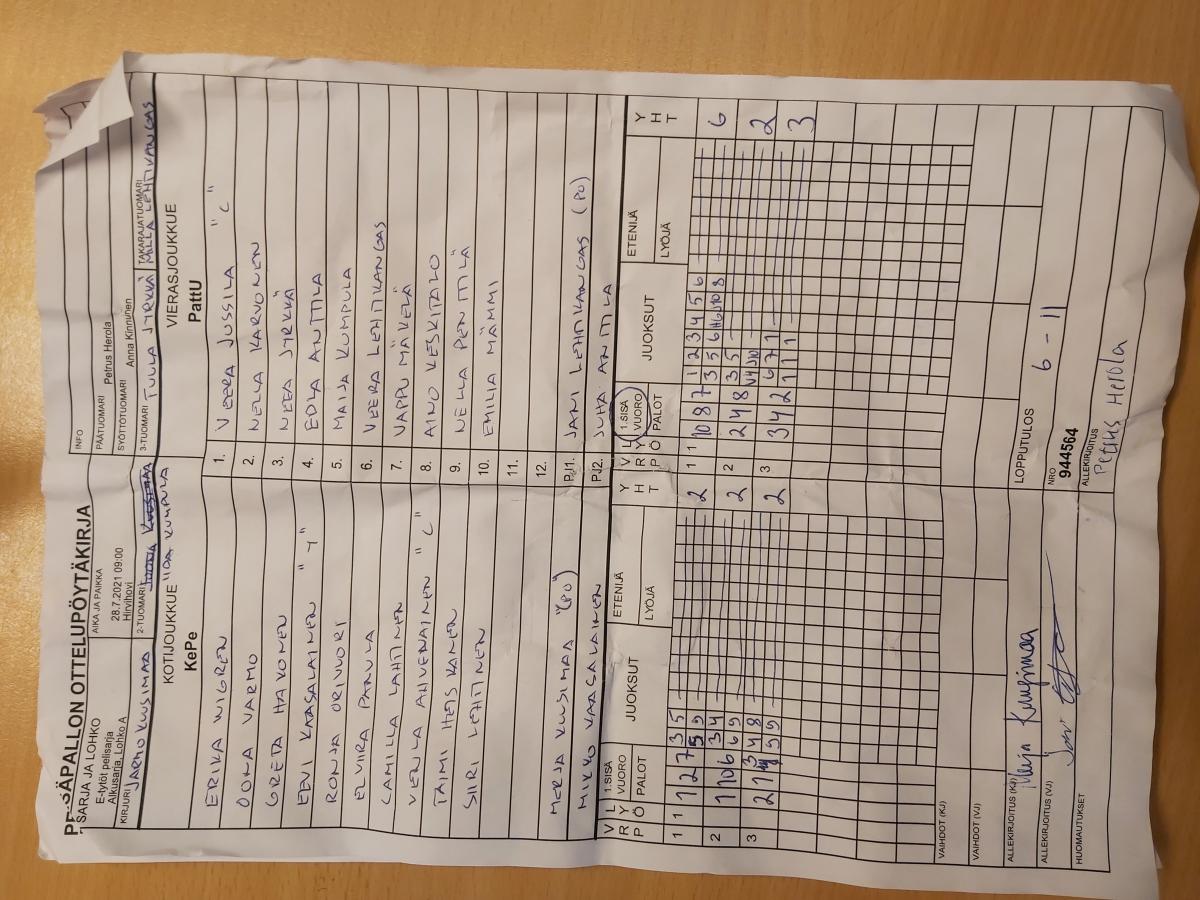 PESÄPALLON OTTELUPÖYTÄKIRJA
SARJA JA LOHKO
E-tytöt pelisarja
Alkusarja, Lohko A
AIKA JA PAIKKA
28.7.2021 09:00
Hirvihovi
INFO
PÄÄTUOMARI Petrus Herola
SYÖTTÖTUOMARI Anna Kinnunen
KIRJURI JARMO KUUSIMAA
2-TUOMARI IIDA KUMPULA
3-TUOMARI TUULA JYRKKÄ
TAKARAJATUOMARI MILLA LEHTIKANGAS
KOTIJOUKKUE
KePe
VIERASJOUKKUE
PattU
ERIKA WIGREN 1. VEERA JUSSILA "C"
OONA VARMO 2. NELLA KARVONEN
GRETA HAKONEN 3. NEEA JYRKKÄ
EEVI KARSALAINEN 4. EDLA ANTTILA
RONJA ORIVUORI 5. MAIJA KUMPULA
ELVIIRA PANULA 6. VEERA LEHTIKANGAS
CAMILLA LAHTINEN 7. VAPPU MÄKELÄ
VENLA AHVENAINEN "C" 8. AINO KESKITALO
TAIMI HEISKANEN 9. NELLA PENTTILÄ
SIIRI LEHTINEN 10. EMILIA MÄMMI
11.
12.
MERJA KUUSIMAA (PO) PJ1. JANI LEHTIKANGAS (PO)
MIKKO KARSALAINEN PJ2. JUHA ANTTILA
V R P L Y Ö 1.SISÄ VUORO PALOT JUOKSUT ETENIJÄ LYÖJÄ Y H T
V R P L Y Ö 1.SISÄ VUORO PALOT JUOKSUT ETENIJÄ LYÖJÄ Y H T
1 1 1 2 7 3 5 2
5 9
1 1 10 8 7 1 2 3 4 5 6 6
2 1 10 6 3 4 2
6 9
2 2 4 8 3 5 2
3 2 8 2
9 9
3 3 4 2 6 7 1 3
1 1 1
VAIHDOT (KJ)
VAIHDOT (VJ)
LOPPUTULOS 6 - 11
ALLEKIRJOITUS (KJ) Merja Kuusimaa
ALLEKIRJOITUS (VJ)
NRO
944564
ALLEKIRJOITUS
Petrus Herola
HUOMAUTUKSET